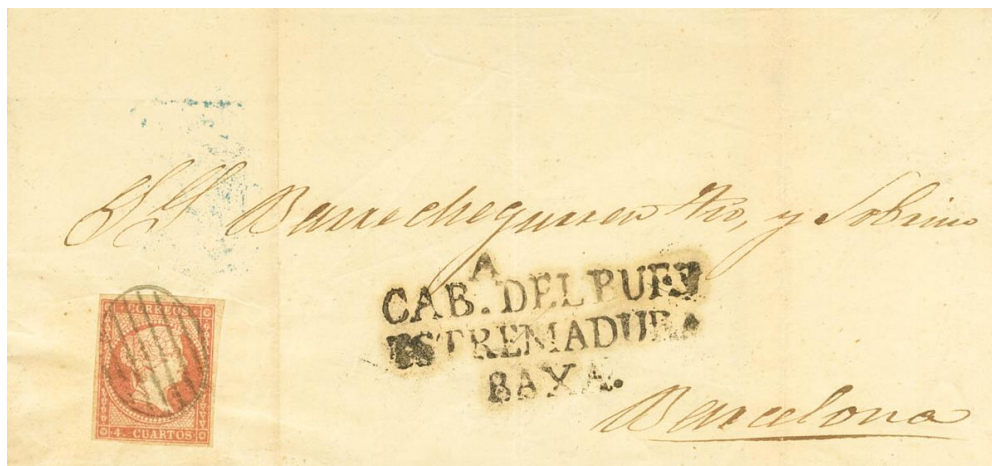 SS Barrecheguren Tio, y Sobrino
A
CAB. DEL BUEY
ESTREMADURA
BAXA.
Barcelona
CORREOS
4 CUARTOS